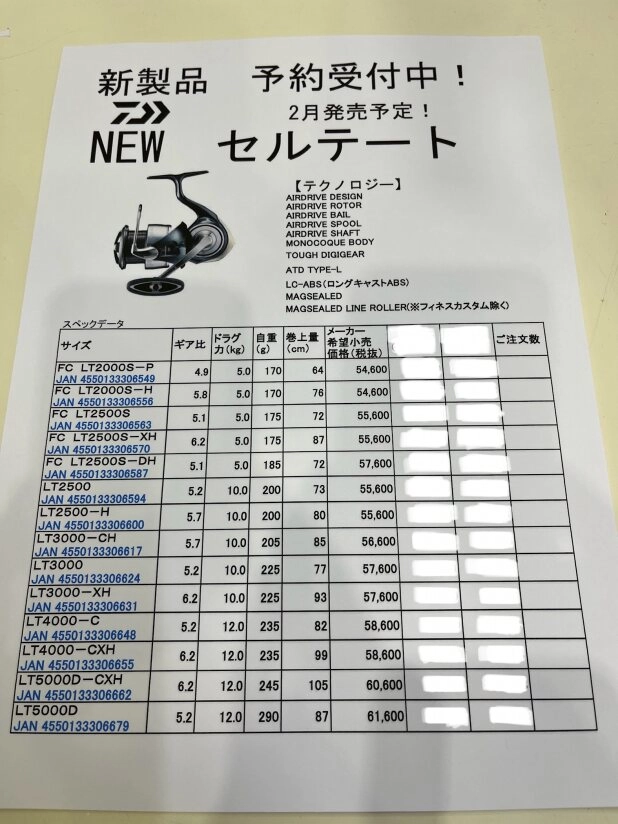 新製品 予約受付中！
2月発売予定！
NEW セルテート
【テクノロジー】
AIRDRIVE DESIGN
AIRDRIVE ROTOR
AIRDRIVE BAIL
AIRDRIVE SPOOL
AIRDRIVE SHAFT
MONOCOQUE BODY
TOUGH DIGIGEAR
ATD TYPE-L
LC-ABS(ロングキャストABS)
MAGSEALED
MAGSEALED LINE ROLLER(※フィネスカスタム除く)
スペックデータ
サイズ ギア比 ドラグ力(kg) 自重(g) 巻上量(cm) メーカー希望小売価格(税抜) ご注文数
FC LT2000S-P 4.9 5.0 170 64 54,600
JAN 4550133306549
FC LT2000S-H 5.8 5.0 170 76 54,600
JAN 4550133306556
FC LT2500S 5.1 5.0 175 72 55,600
JAN 4550133306563
FC LT2500S-XH 6.2 5.0 175 87 55,600
JAN 4550133306570
FC LT2500S-DH 5.1 5.0 185 72 57,600
JAN 4550133306587
LT2500 5.2 10.0 200 73 55,600
JAN 4550133306594
LT2500-H 5.7 10.0 200 80 55,600
JAN 4550133306600
LT3000-CH 5.7 10.0 205 85 56,600
JAN 4550133306617
LT3000 5.2 10.0 225 77 57,600
JAN 4550133306624
LT3000-XH 6.2 10.0 225 93 57,600
JAN 4550133306631
LT4000-C 5.2 12.0 235 82 58,600
JAN 4550133306648
LT4000-CXH 6.2 12.0 235 99 58,600
JAN 4550133306655
LT5000D-CXH 6.2 12.0 245 105 60,600
JAN 4550133306662
LT5000D 5.2 12.0 290 87 61,600
JAN 4550133306679